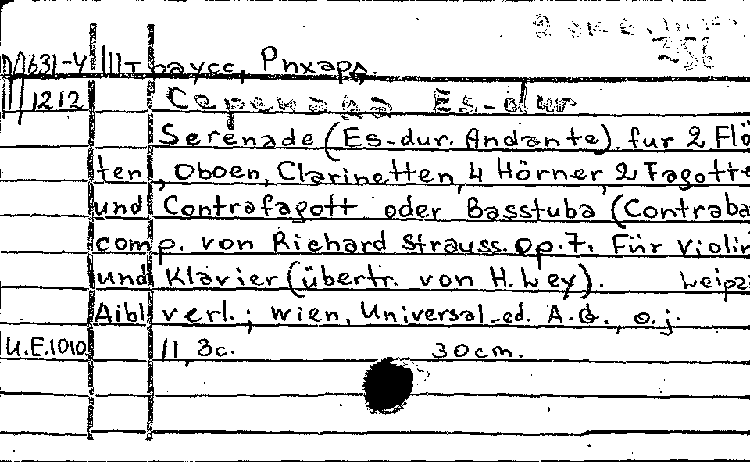 2 экз.
356
М631-4 Штраусс, Рихард
1212 Серенада Es-dur
Serenade (Es-dur. Andante) fur 2 Flö
ten, Oboen, Clarinetten, 4 Hörner 2 Fagotte
und Contrafagott oder Basstuba (Contraba
comp. von Richard Strauss. Op. 7. Für violin
und Klavier (übertr. von H. Ley). Leipz
Aibl verl.; Wien, Universal-ed. A.G., o.j.
U.E.1010 11, 3c. 30cm.